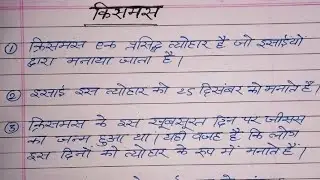 क्रिसमस
① क्रिसमस एक प्रसिद्ध त्योहार है जो इसाईयों
द्वारा मनाया जाता है।
② इसाई इस त्योहार को 25 दिसंबर को मनाते हैं।
③ क्रिसमस के इस खूबसूरत दिन पर जीसस
का जन्म हुआ था। यही वजह है कि लोग
इस दिनों को त्योहार के रूप में मनाते हैं।